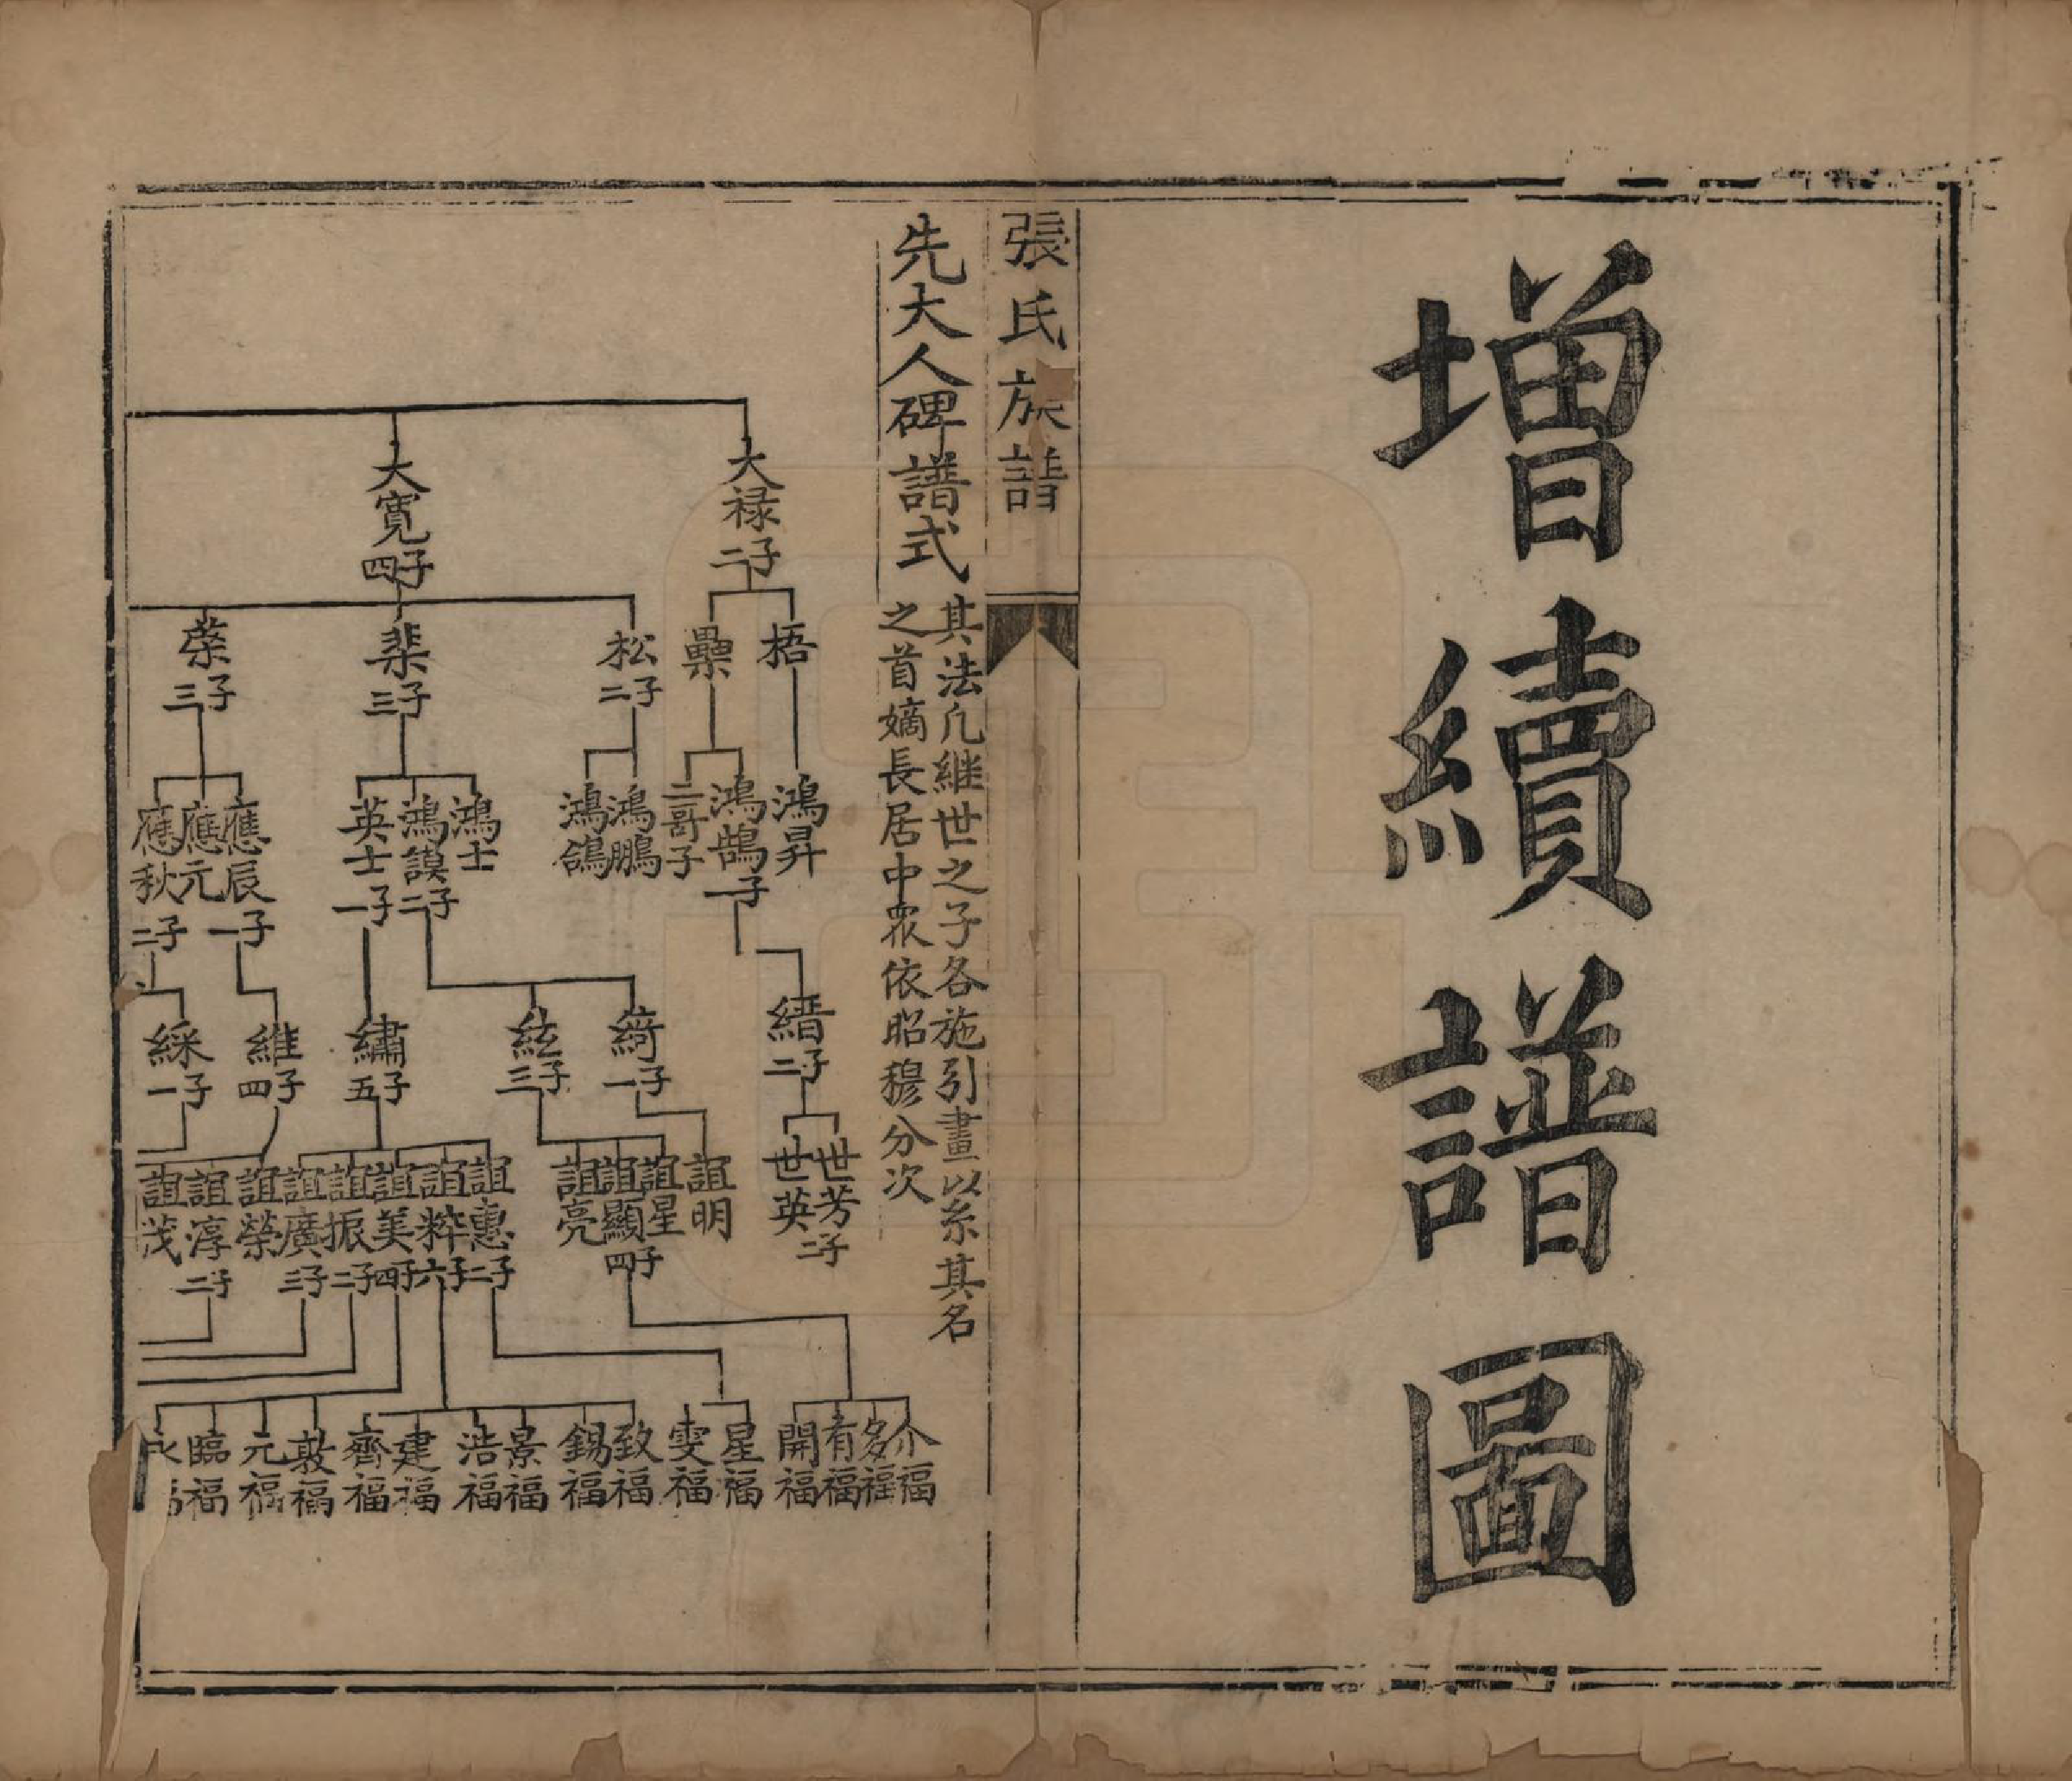 增續譜圖
張氏族譜
先大人碑譜式
其法凡継世之子各施引畫以系其名
之首嫡長居中眾依昭穆分次
大禄二子
大寛四子
梧
松二子
棐三子
三子
鴻昇
鴻鵠一子
二哥子
鴻鵬
鴻鴿
鴻士
鴻謨二子
英士一子
應辰一子
應元
應秋二子
縉二子
綺一子
絃三子
繡五子
維四子
綵一子
世芳二子
世英
誼明
誼星
誼顯四子
誼亮
誼惠二子
誼粹六子
誼美四子
誼振二子
誼廣三子
誼榮
誼淳二子
誼茂
介福
多福
有福
開福
星福
雯福
致福
錫福
景福
浩福
建福
齊福
敦福
元福
臨福
永福